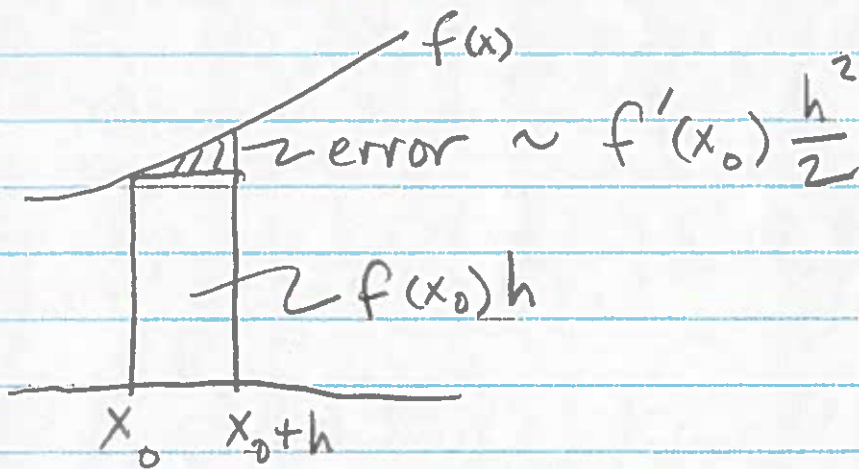 f(x)
error ~ f'(x₀) h²/2
f(x₀)h
x₀ x₀+h